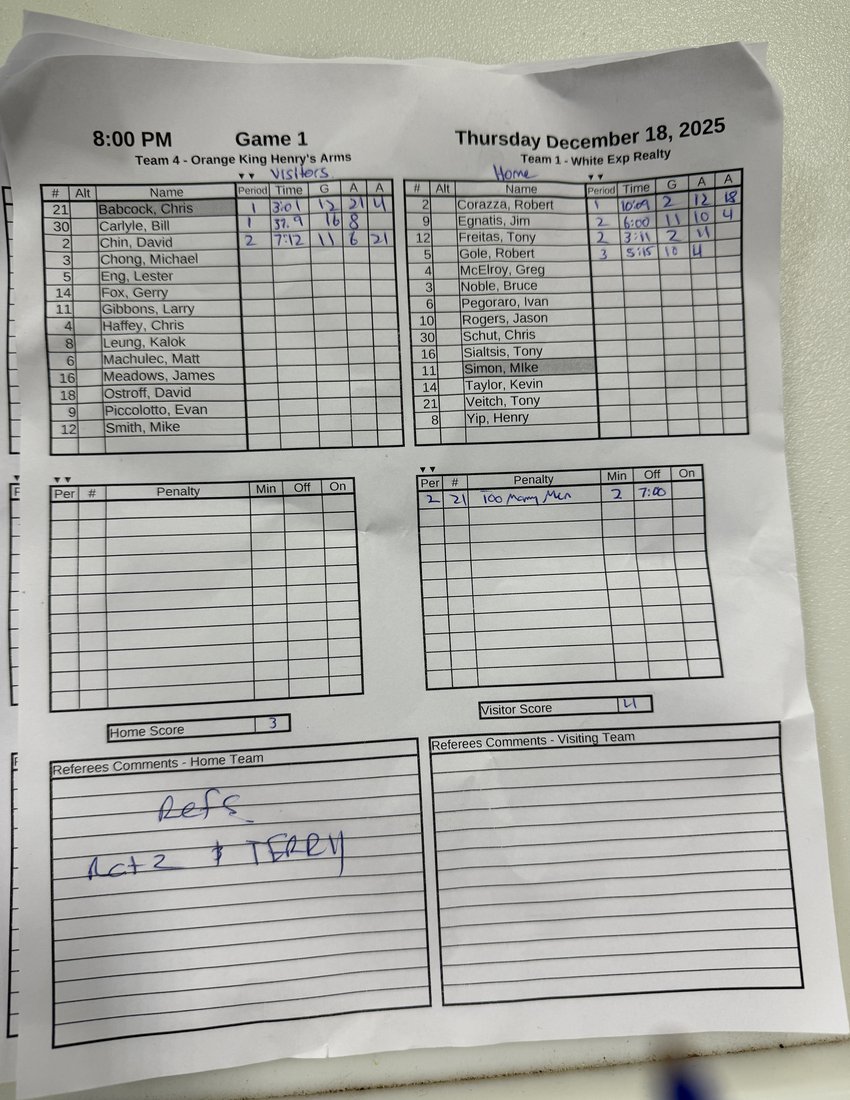 8:00 PM Game 1 Thursday December 18, 2025
Team 4 - Orange King Henry's Arms Team 1 - White Exp Realty
Visitors Home
# Alt Name Period Time G A A
21 Babcock, Chris 1 3:01 12 21 4
30 Carlyle, Bill 1 37.9 16 8
2 Chin, David 2 7:12 11 6 21
3 Chong, Michael
5 Eng, Lester
14 Fox, Gerry
11 Gibbons, Larry
4 Haffey, Chris
8 Leung, Kalok
6 Machulec, Matt
16 Meadows, James
18 Ostroff, David
9 Piccolotto, Evan
12 Smith, Mike
# Alt Name Period Time G A A
2 Corazza, Robert 1 10:09 2 12 18
9 Egnatis, Jim 2 6:00 11 10 4
12 Freitas, Tony 2 3:11 2 11
5 Gole, Robert 3 5:15 10 4
4 McElroy, Greg
3 Noble, Bruce
6 Pegoraro, Ivan
10 Rogers, Jason
30 Schut, Chris
16 Sialtsis, Tony
11 Simon, MIke
14 Taylor, Kevin
21 Veitch, Tony
8 Yip, Henry
Per # Penalty Min Off On
Per # Penalty Min Off On
2 21 Too Many Men 2 7:00
Home Score 3
Visitor Score 4
Referees Comments - Home Team
Refs
& TERRY
Referees Comments - Visiting Team